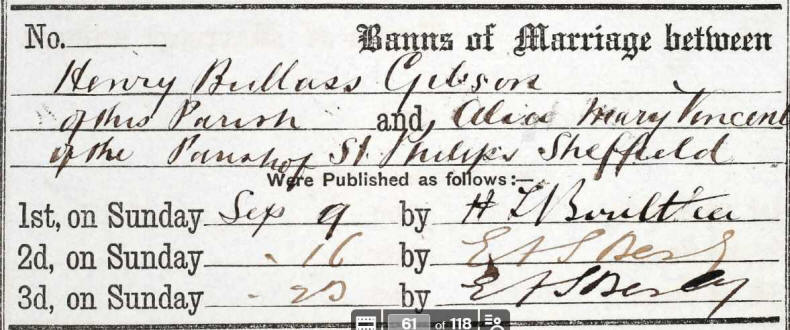 No. Banns of Marriage between
Henry Bullass Gibson
of this Parish and Alice Mary Vincent
of the Parish of St. Philips Sheffield
Were Published as follows:—
1st, on Sunday Sep 9 by H L
2d, on Sunday " 16 by
3d, on Sunday " 23 by
61 of 118